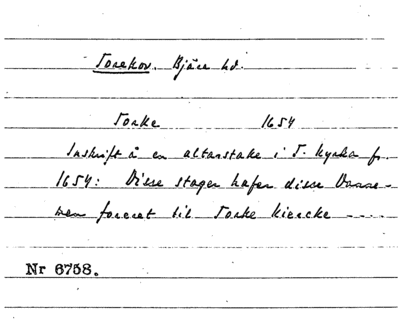 Torekov. Bjäre hd.
Torke 1654
Inskrift å en altarstake i T. kyrka fr.
1654: Disse stager hafer disse Danne-
men foreret til Torke Kiercke ----
Nr 6758.